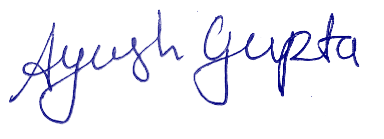 Ayush Gupta